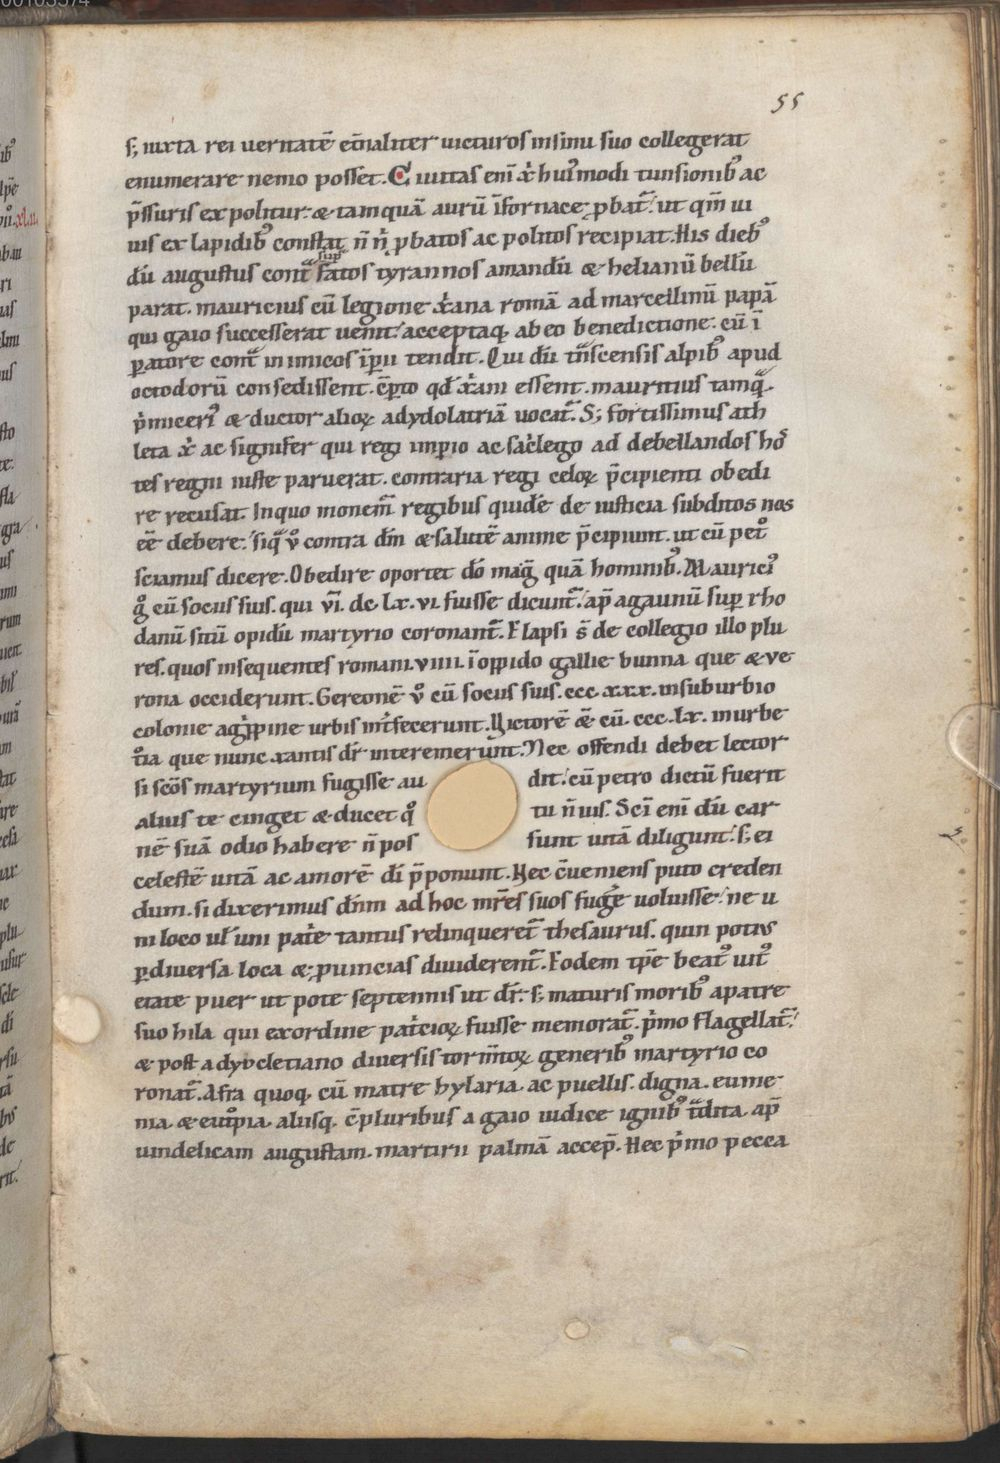 55
s; iuxta rei ueritatē et̄naliter uicturos in sinu suo collegerat
enumerare nemo posset. Ciuitas eni x̄ huꝰmodi tunsionibꝰ ac
p̄ssuris expolitur. & tamquā aurū ī fornace ꝓbat᷑. ut qm̄ ui
uis ex lapidibꝰ constat n̄ n̄ ꝓbatos ac politos recipiat. His diebꝰ
dū augustus cont̄ satos tyrannos amandū & helianū bellū
sup
parat. mauricius cū legione x̄ana romā ad marcellinū papā
qui gaio successerat uenit. acceptaq; ab eo benedictione. cū ī
ꝑatore cont̄ inimicos īꝑii tendit. Qui dū t̄nscensis alpibꝰ apud
octodorū consedissent. c̄ꝑto qd̄ x̄ani essent. mauritius tamq̄
p̄miceriꝰ & ductor alioꝝ ad ydolatriā uocat᷑. S; fortissimus ath
leta x̄ ac signifer qui regi imꝑio ac sac̄lego ad debellandos hos̄
tes regni iuste paruerat. contraria regi celoꝝ p̄cipienti obedi
re recusat. In quo monem᷑ regibus quidē de iusticia subditos nos
eē debere. siq̄ v̊ contra dm̄ & salutē anime p̄cipiunt. ut cū pet̊
sciamus dicere. Obedire oportet dō maḡ quā hominibꝰ. Mauriciꝰ
g̊ cū sociis suis. qui vī. dc. lx. vi fuisse dicunt᷑. ap̄ agaunū suꝑ rho
danū sitū opidū martyrio coronant᷑. Elapsi s̄ de collegio illo plu
res. quos insequentes romani. viiii. ī oppido gallie bunna que & ve
rona occiderunt. Gereonē v̊ cū sociis suis. ccc. xxx. in suburbio
colonie agp̄pine urbis int̄fecerunt. Victorē &̄ cū. ccc. lx. in urbe
t̊ia que nunc xantis dr̄ interemerunt. Nec offendi debet lector
si scōs martyrium fugisse au dit. cū petro dictū fuerit
alius te cinget & ducet q̊ tu n̄ uis. Sci eni dū car
nē suā odio habere n̄ pos sunt uitā diligunt. s; ei
celestē uitā ac amorē di p̄ponunt. Hec c̄ueniens puto creden
dum. si dixerimus dn̄m ad hoc mr̄es suos fuge uoluisse. ne u
ni loco ul̄ uni pat̄e tantus relinqueret᷑ thesaurus. quin potiꝰ
ꝑ diuersa loca &; ꝓuincias diuiderent᷑. Eodem tp̄e beatꝰ uitꝰ
etate puer ut pote septennis ut dr̄. s; maturis moribꝰ a patre
suo hila qui ex ordine pat̄cioꝝ fuisse memorat᷑. p̄mo flagellat᷑.
& post a dyocletiano diuersis torm̄toꝝ generibꝰ martyrio co
ronat᷑. Afra quoq; cū matre hylaria. ac puellis. digna. eume
nia. & eut̊pia. aliisq; c̄pluribus a gaio iudice ignibꝰ t̄dita. ap̄
uindelicam augustam. martirii palmā accep̄. Hec p̄mo pecca